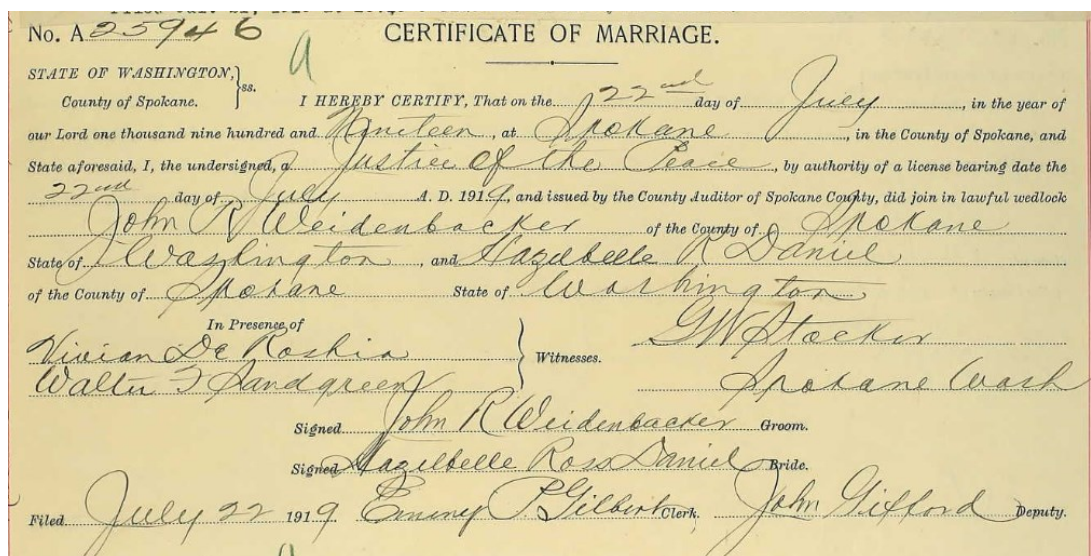 No. A 25946 CERTIFICATE OF MARRIAGE.
a
STATE OF WASHINGTON, } ss.
County of Spokane. I HEREBY CERTIFY, That on the 22nd day of July, in the year of
our Lord one thousand nine hundred and Nineteen, at Spokane, in the County of Spokane, and
State aforesaid, I, the undersigned, a Justice of the Peace, by authority of a license bearing date the
22nd day of July A. D. 1919, and issued by the County Auditor of Spokane County, did join in lawful wedlock
John R Weidenbacker of the County of Spokane
State of Washington, and Hazelbelle R Daniel
of the County of Spokane State of Washington
In Presence of G W Stocker
Vivian De Roshia } Witnesses.
Walter F Sandgreen Spokane Wash
Signed John R Weidenbacker Groom.
Signed Hazelbelle Ross Daniel Bride.
Filed July 22 1919 Emmy P Gilbert Clerk. John Gifford Deputy.